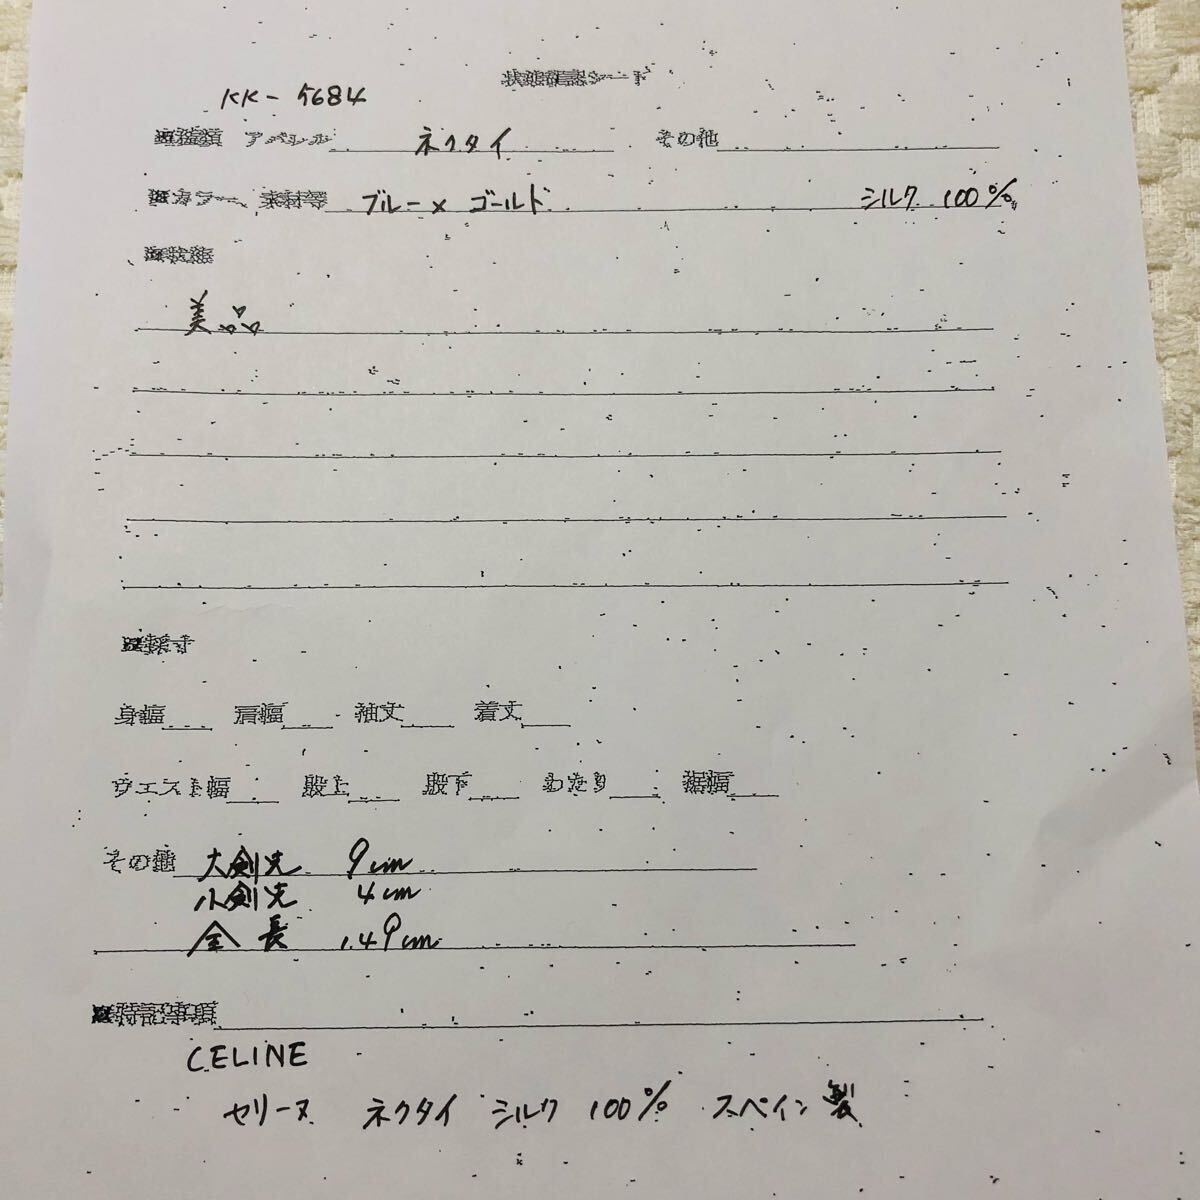 状態確認シート
KK-5684
■種類 アパレル ネクタイ その他
■カラー、素材等 ブルー×ゴールド シルク 100%
■状態
美品
■採寸
身幅 肩幅 袖丈 着丈
ウエスト幅 股上 股下 わたり 裾幅
その他 大剣先 9cm
小剣先 4cm
全長 149cm
■特記事項
CELINE
セリーヌ ネクタイ シルク 100% スペイン製